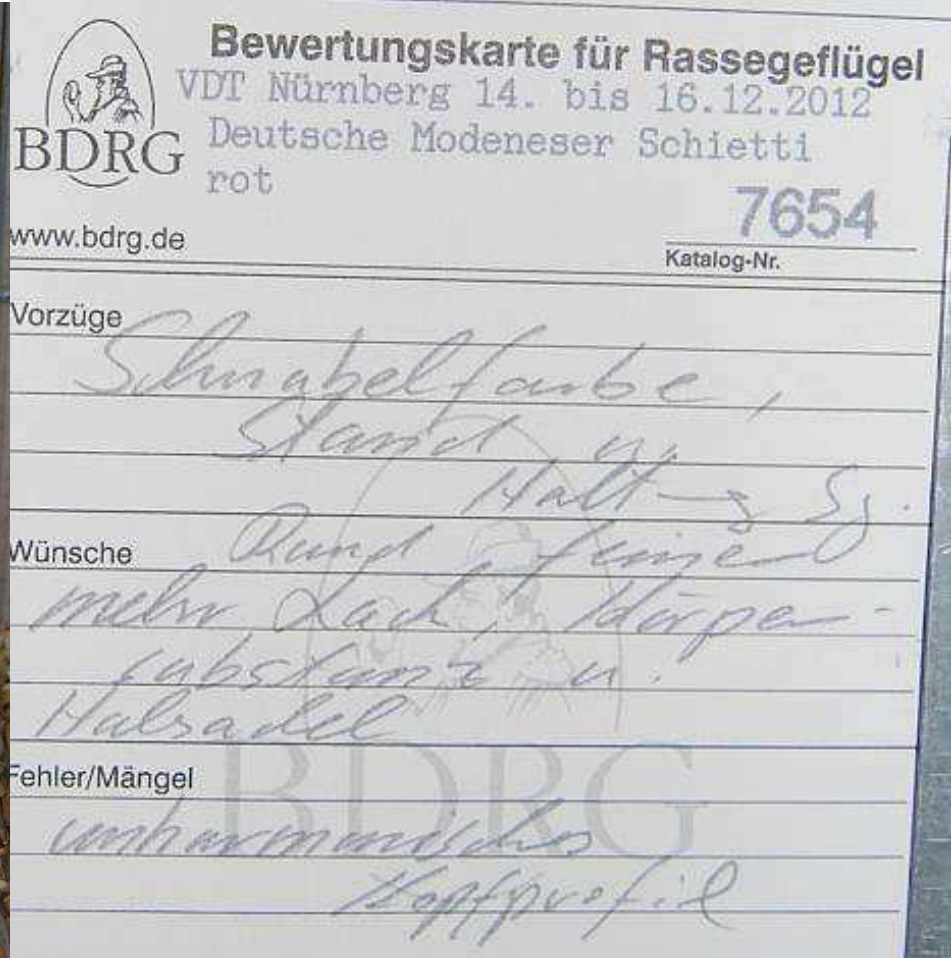 Bewertungskarte für Rassegeflügel
VDT Nürnberg 14. bis 16.12.2012
BDRG
Deutsche Modeneser Schietti
rot
7654
www.bdrg.de
Katalog-Nr.
Vorzüge
Schnabelfarbe,
Stand u.
Wünsche
mehr Lack, Körper-
substanz u.
Halsadel
BDRG
Fehler/Mängel
unharmonisches
Kopfprofil